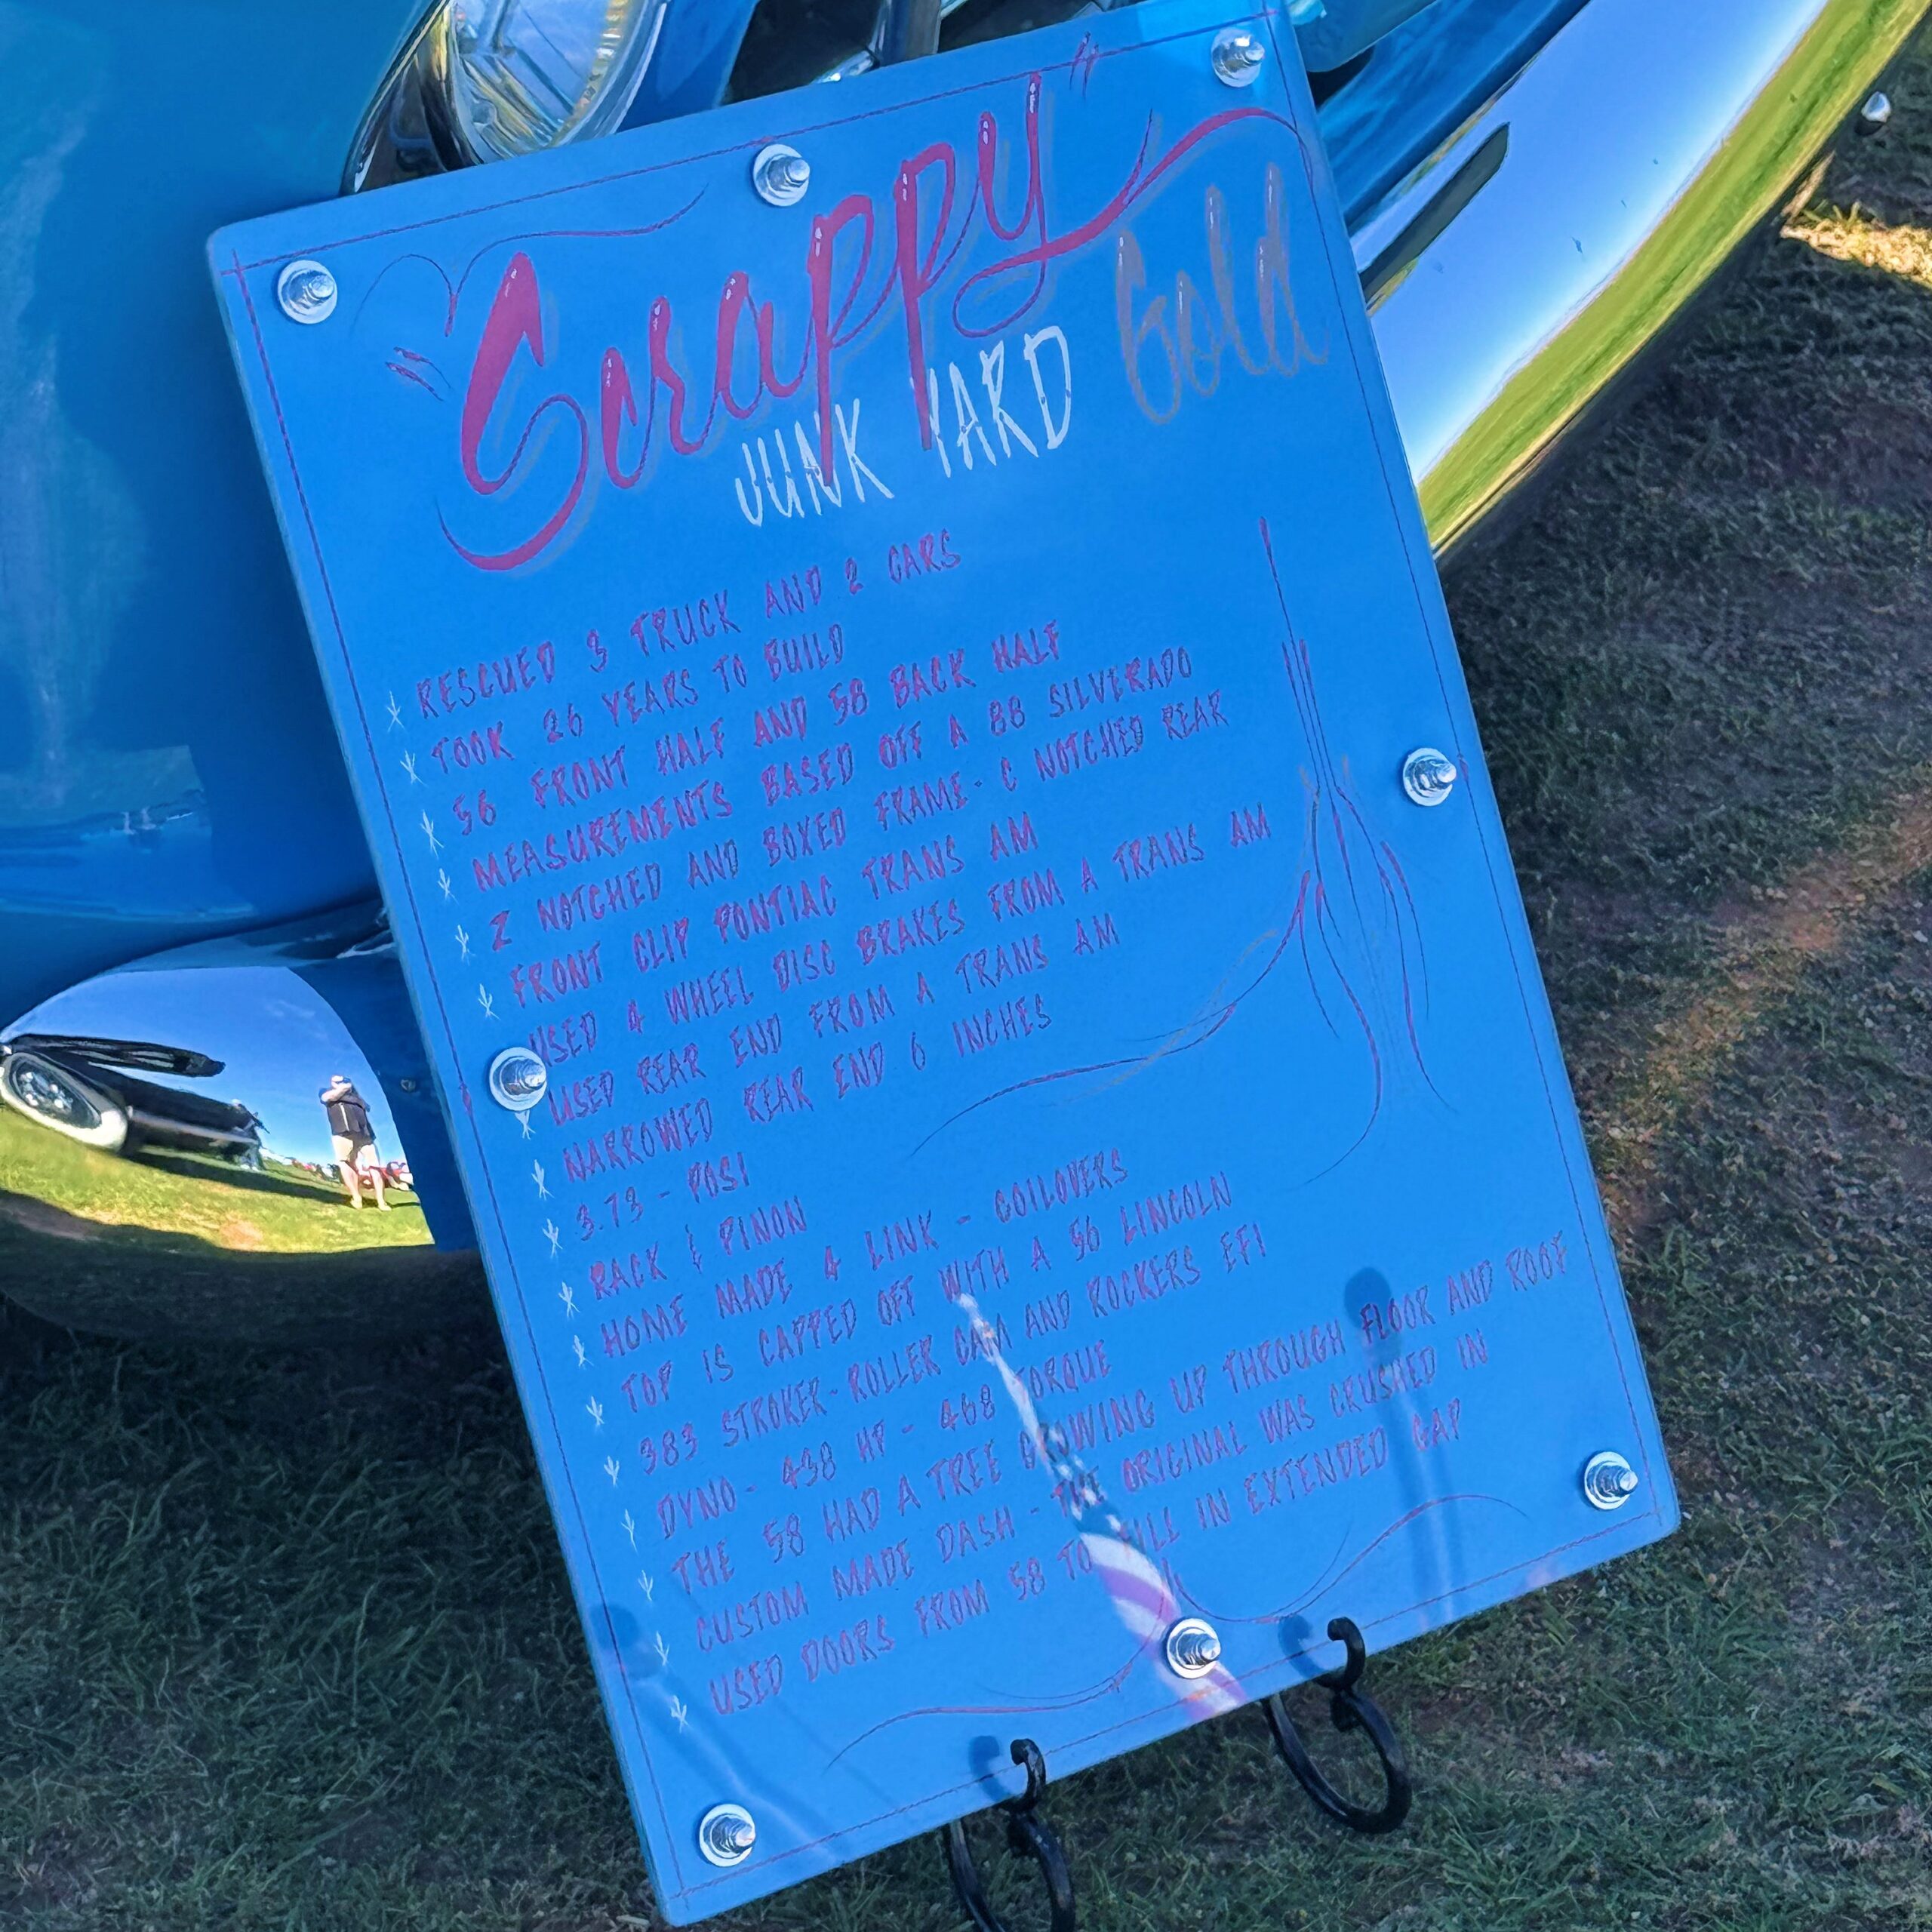 "Scrappy"
JUNK YARD Gold
RESCUED 3 TRUCK AND 2 CARS
TOOK 26 YEARS TO BUILD
56 FRONT HALF AND 58 BACK HALF
MEASUREMENTS BASED OFF A 88 SILVERADO
Z NOTCHED AND BOXED FRAME - C NOTCHED REAR
FRONT CLIP PONTIAC TRANS AM
USED 4 WHEEL DISC BRAKES FROM A TRANS AM
USED REAR END FROM A TRANS AM
NARROWED REAR END 6 INCHES
3.73 - POSI
RACK & PINON
HOME MADE 4 LINK - COILOVERS
TOP IS CAPPED OFF WITH A 56 LINCOLN
383 STROKER - ROLLER CAM AND ROCKERS EFI
DYNO - 438 HP - 468 TORQUE
THE 58 HAD A TREE GROWING UP THROUGH FLOOR AND ROOF
CUSTOM MADE DASH - THE ORIGINAL WAS CRUSHED IN
USED DOORS FROM 58 TO FILL IN EXTENDED CAP